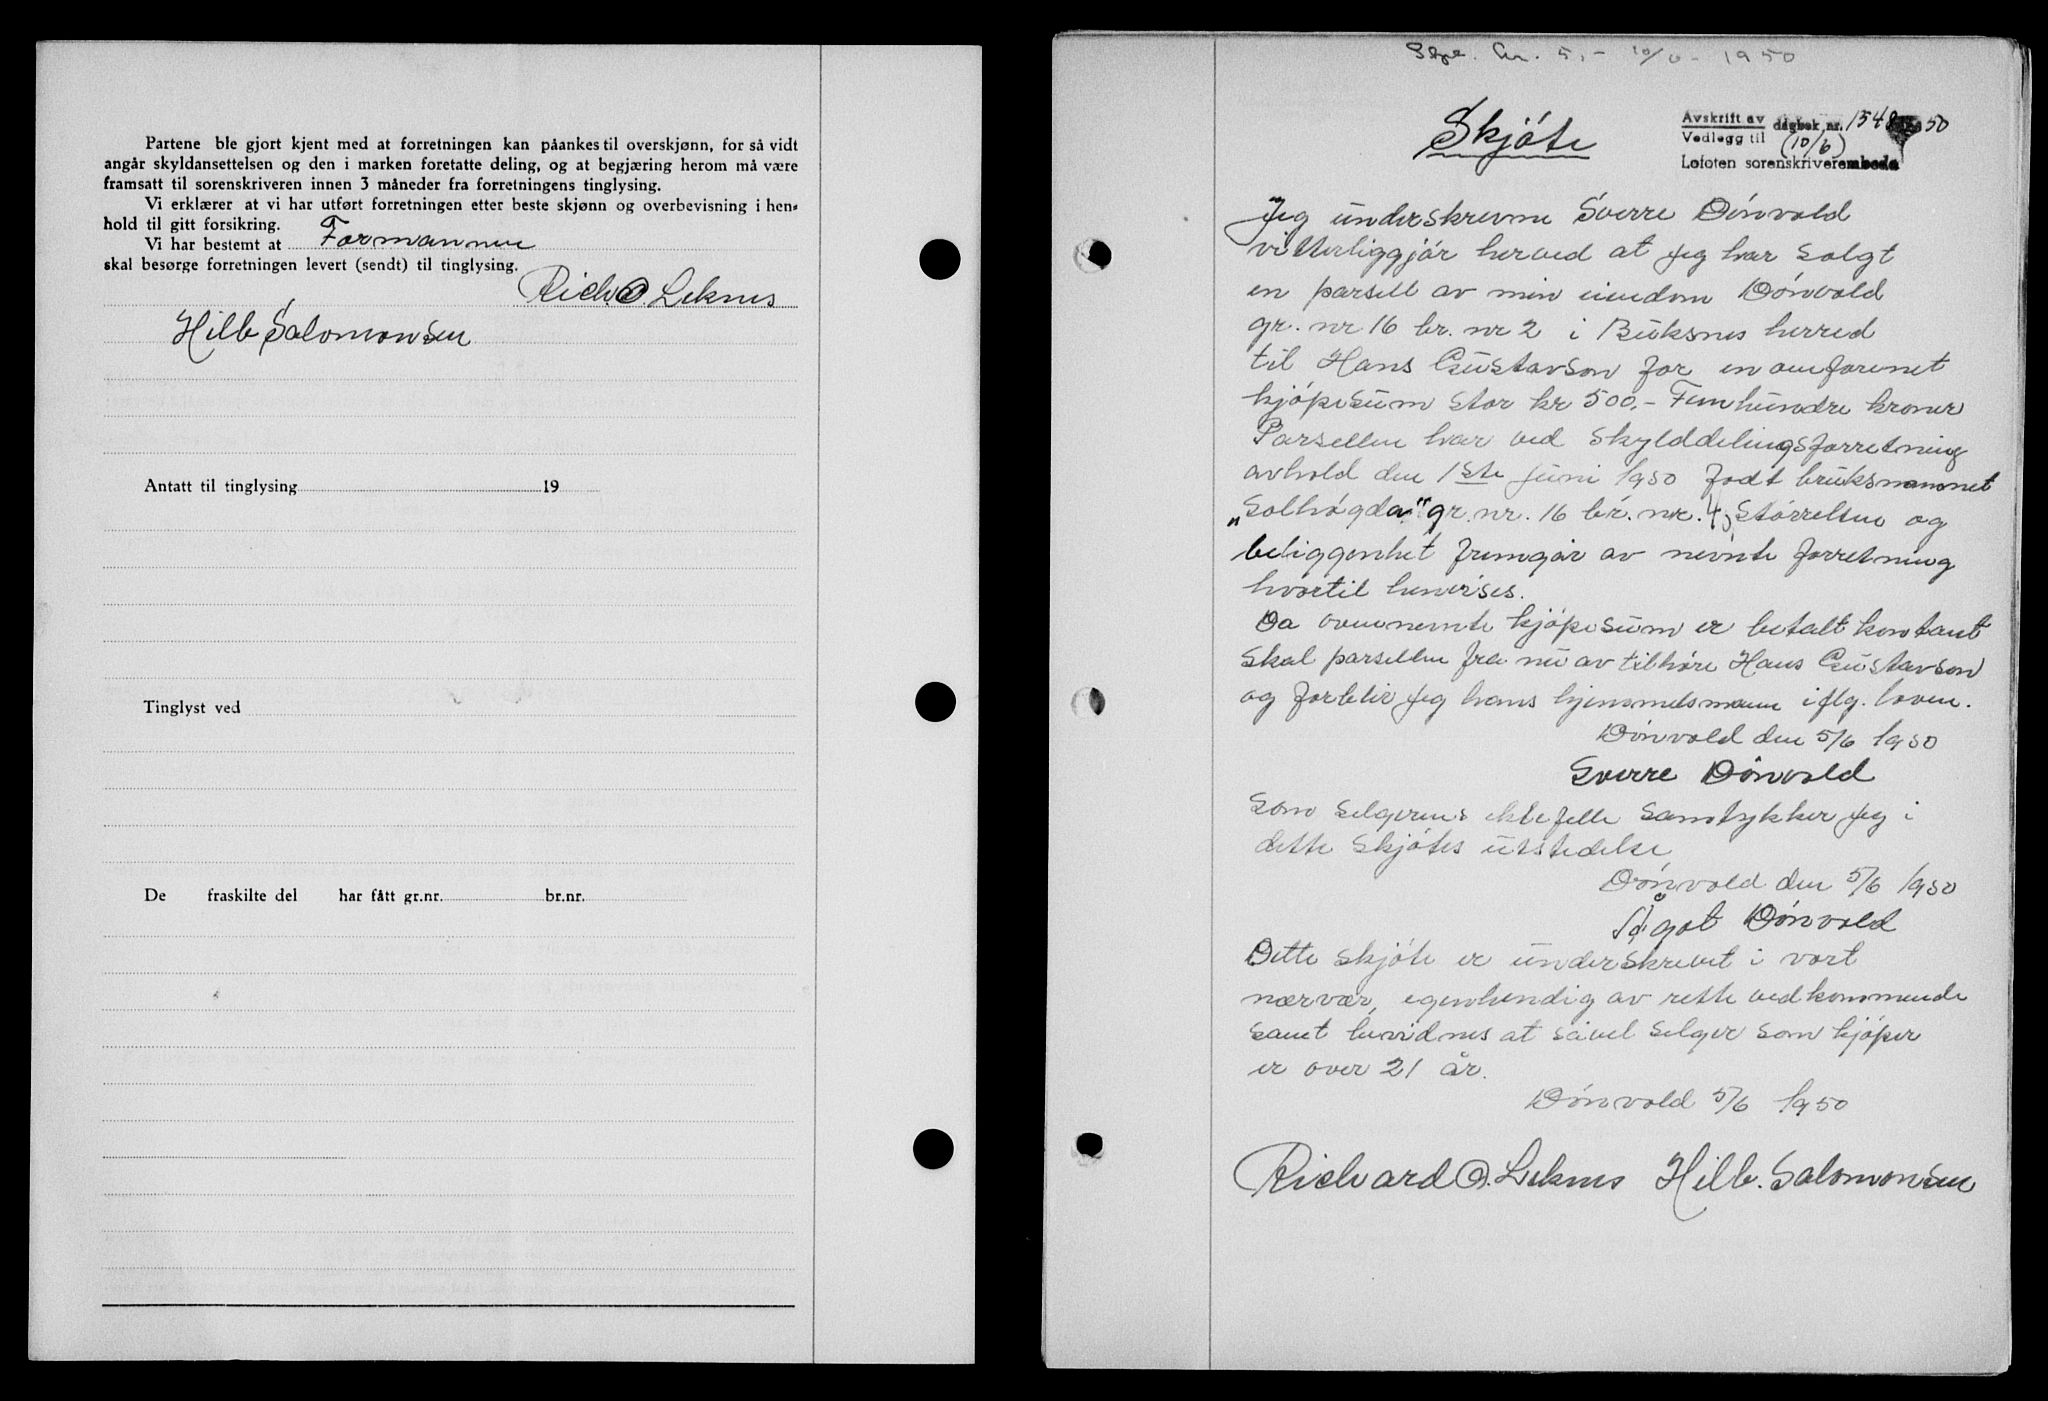 Partene ble gjort kjent med at forretningen kan påankes til overskjønn, for så vidt
angår skyldansettelsen og den i marken foretatte deling, og at begjæring herom må være
framsatt til sorenskriveren innen 3 måneder fra forretningens tinglysing.
Vi erklærer at vi har utført forretningen etter beste skjønn og overbevisning i hen-
hold til gitt forsikring.
Vi har bestemt at Formannen
skal besørge forretningen levert (sendt) til tinglysing.
Rich. O. Leknes
Hilb Salomonsen
Antatt til tinglysing 19
Tinglyst ved
De fraskilte del har fått gr.nr. br.nr.
5,- 10/6 - 1950
Skjöte
Avskrift av dagbok nr. 1548 50
Vedlegg til (10/6)
Lofoten sorenskriverembede
Jeg underskrevne Sverre Dönvold
vitterliggjör herved at jeg har solgt
en parsell av min eiendom Dönvold
gr. nr 16 br. nr 2 i Buksnes herred
til Hans Gustavson for en omforenet
kjöpesum stor kr 500,- Femhundre kroner
Parsellen har ved skylddelingsforretning
avhold den 1ste juni 1950 fodt bruksnavnet
"Solhögda" gr. nr. 16 br. nr. 45 Störrelsen og
beliggenhet fremgår av nevnte forretning
hvortil henvises.
Da ovennevnte kjöpesum er betalt kontant
skal parsellen fra nu av tilhöre Hans Gustavson
og forblir jeg hans hjemmelsmann iflg. loven.
Dönvold den 5/6 1950
Sverre Dönvold
Som selgerens ektefelle samtykker jeg i
dette skjötes utstedelse
Dönvold den 5/6 1950
Ågot Dönvold
Dette skjöte er underskrevet i vort
nærvær, egenhendig av rette vedkommende
samt bevidnes at såvel selger som kjöper
er over 21 år.
Dönvold 5/6 1950
Richard O. Leknes Hilb. Salomonsen